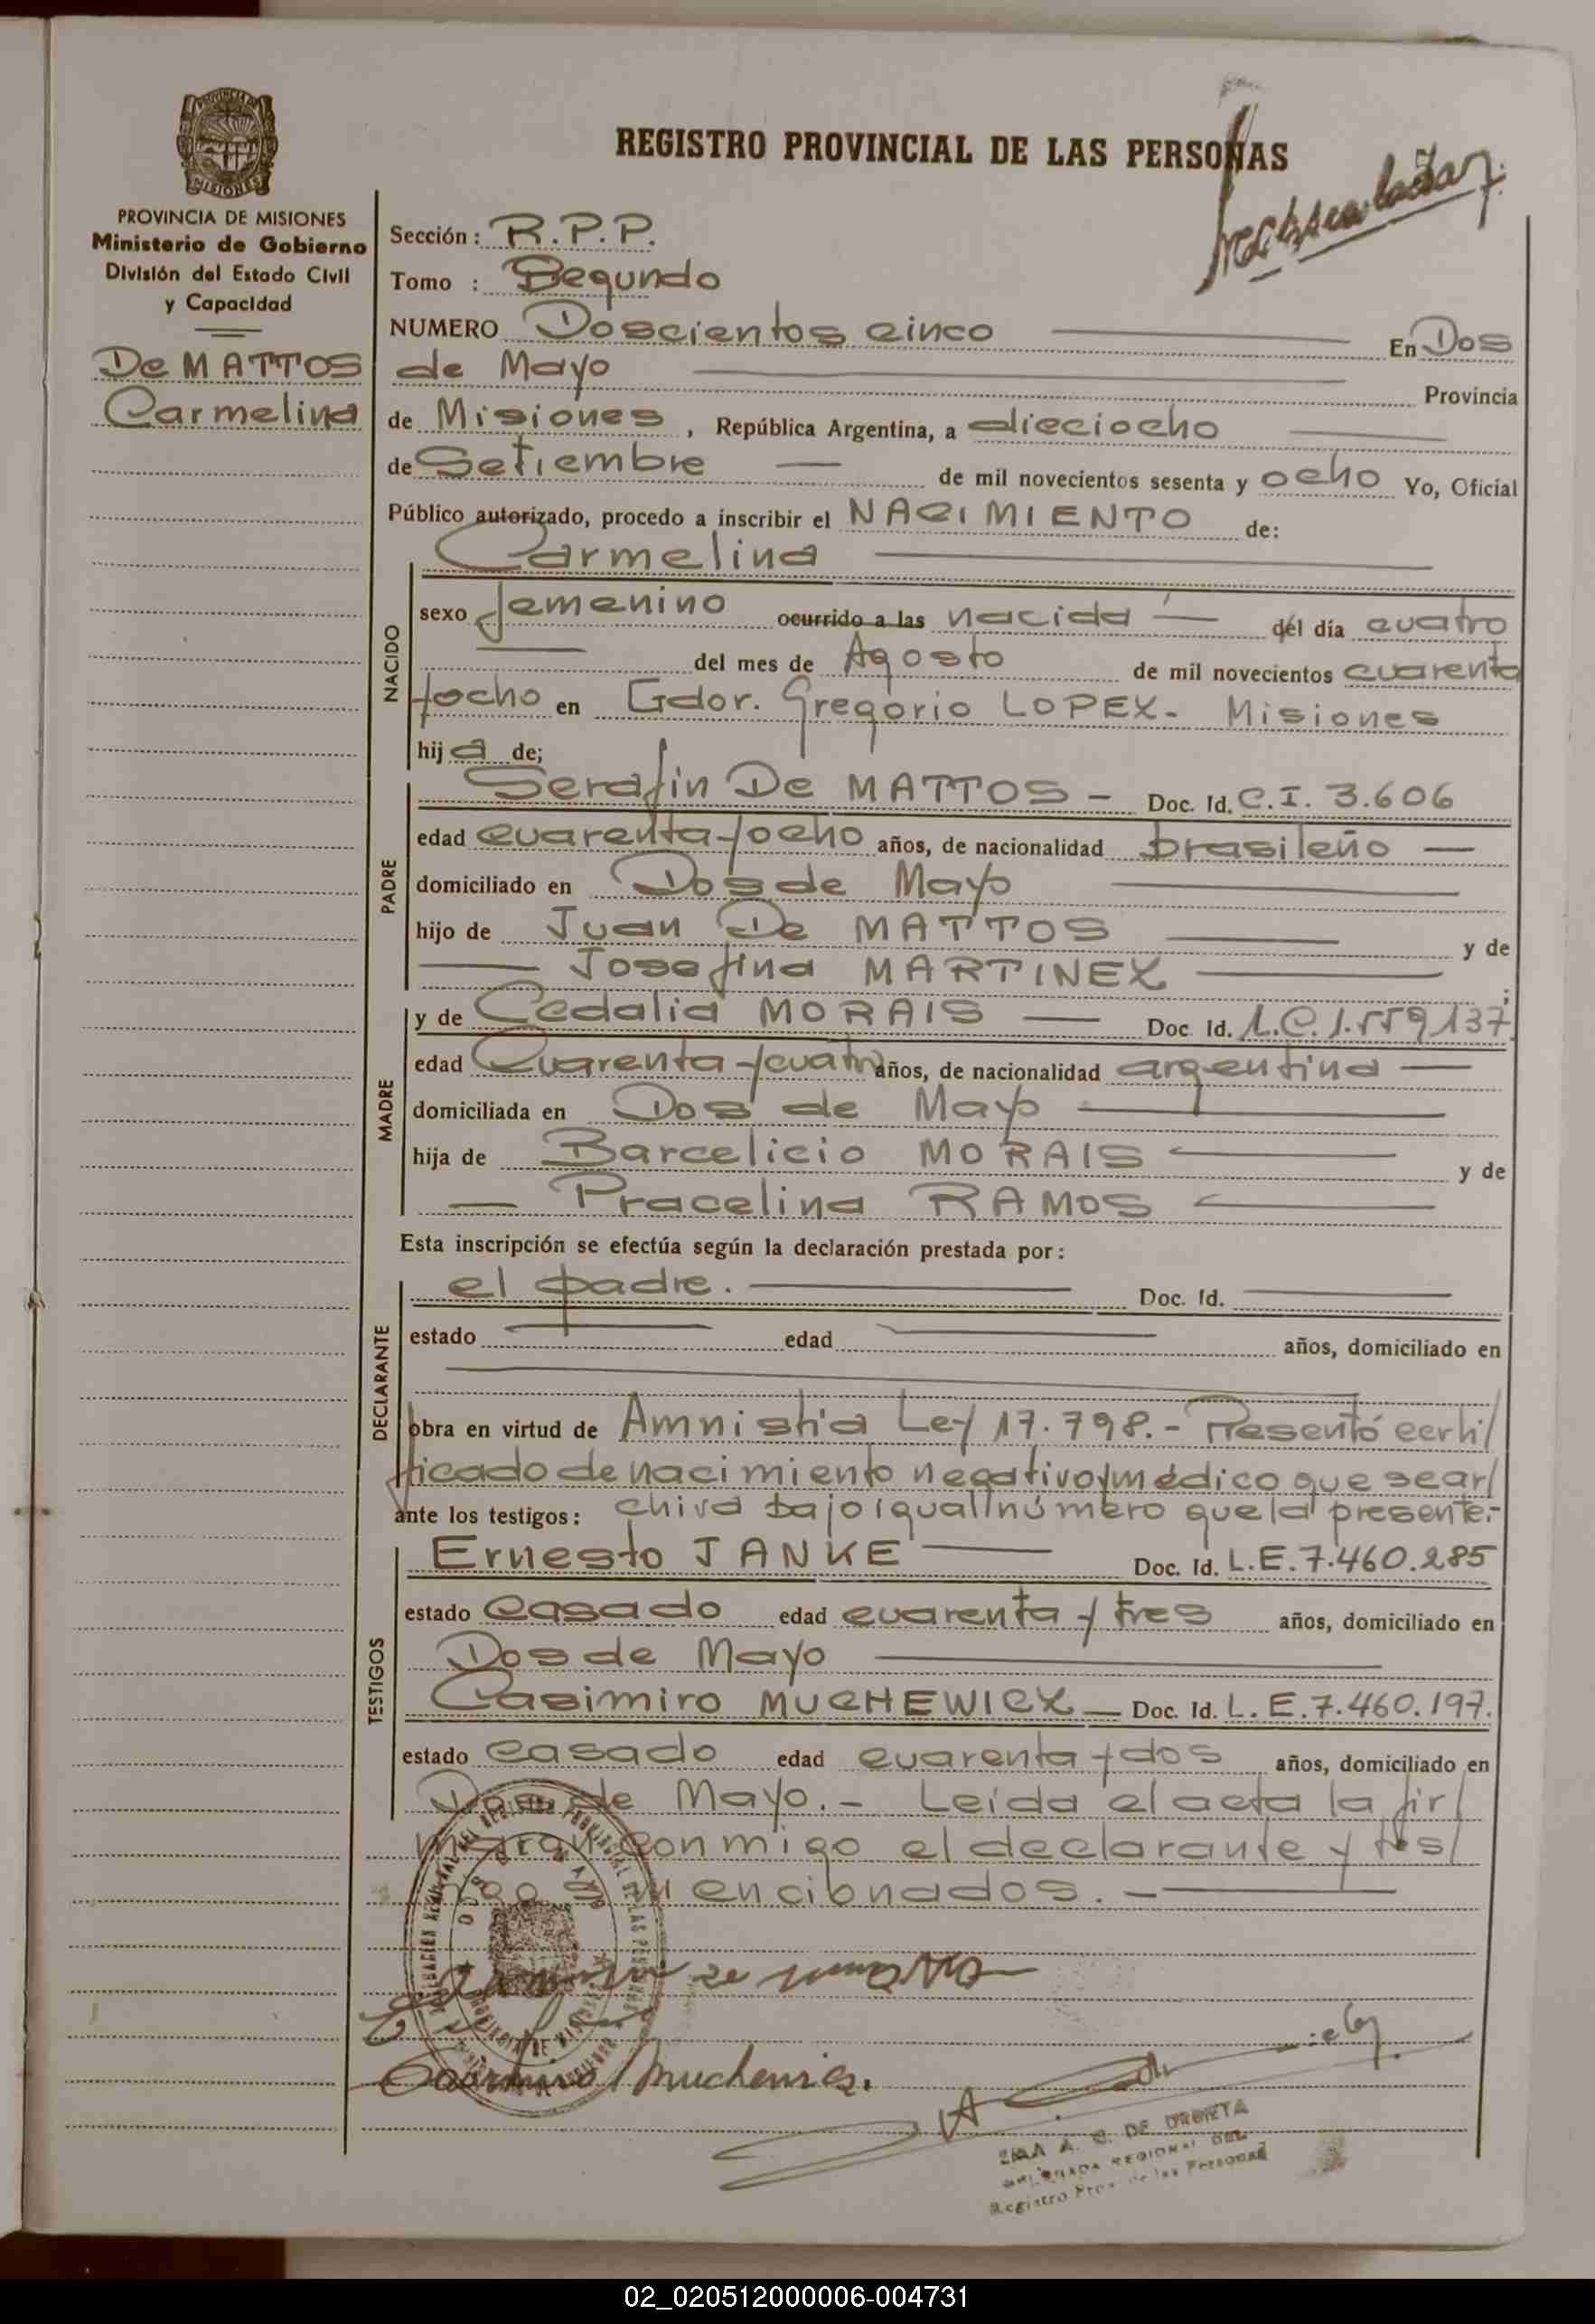 REGISTRO PROVINCIAL DE LAS PERSONAS
PROVINCIA DE
MISIONES
PROVINCIA DE MISIONES
Ministerio de Gobierno
División del Estado Civil
y Capacidad
De MATTOS
Carmelina
Sección: R.P.P.
Tomo : Segundo
NUMERO Doscientos cinco En Dos
de Mayo Provincia
de Misiones, República Argentina, a dieciocho
de Setiembre de mil novecientos sesenta y ocho Yo, Oficial
Público autorizado, procedo a inscribir el NACIMIENTO de:
Carmelina
NACIDO
sexo femenino ocurrido a las nacida del día cuatro
del mes de Agosto de mil novecientos cuarenta
yocho en Gdor. Gregorio LOPEZ- Misiones
hija de;
PADRE
Serafin De MATTOS - Doc. Id. C.I. 3.606
edad cuarenta yocho años, de nacionalidad brasileño
domiciliado en Dos de Mayo
hijo de Juan De MATTOS y de
Josefina MARTINEZ ;
MADRE
y de Cedalia MORAIS Doc. Id. L.C. 1.559137
edad Cuarenta ycuatro años, de nacionalidad argentina
domiciliada en Dos de Mayo
hija de Barcelicio MORAIS y de
Pracelina RAMOS
Esta inscripción se efectúa según la declaración prestada por:
DECLARANTE
el padre. Doc. Id.
estado edad años, domiciliado en
obra en virtud de Amnistia Ley 17.798.- Presentó certi/
ficado de nacimiento negativo y médico que se ar/
ante los testigos: chiva bajo igual número que la presente.-
TESTIGOS
Ernesto JANKE Doc. Id. L.E. 7.460.285
estado casado edad cuarenta y tres años, domiciliado en
Dos de Mayo
Casimiro MUCHEWICZ Doc. Id. L.E. 7.460.197.
estado casado edad cuarenta y dos años, domiciliado en
Dos de Mayo.- Leída el acta la fir/
maron conmigo el declarante y tes/
mencionados.-
DE URBIETA
REGIONAL DEL
Registro Prov. de las Personas
02_020512000006-004731